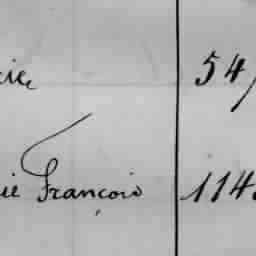 rie 54
rie François 114